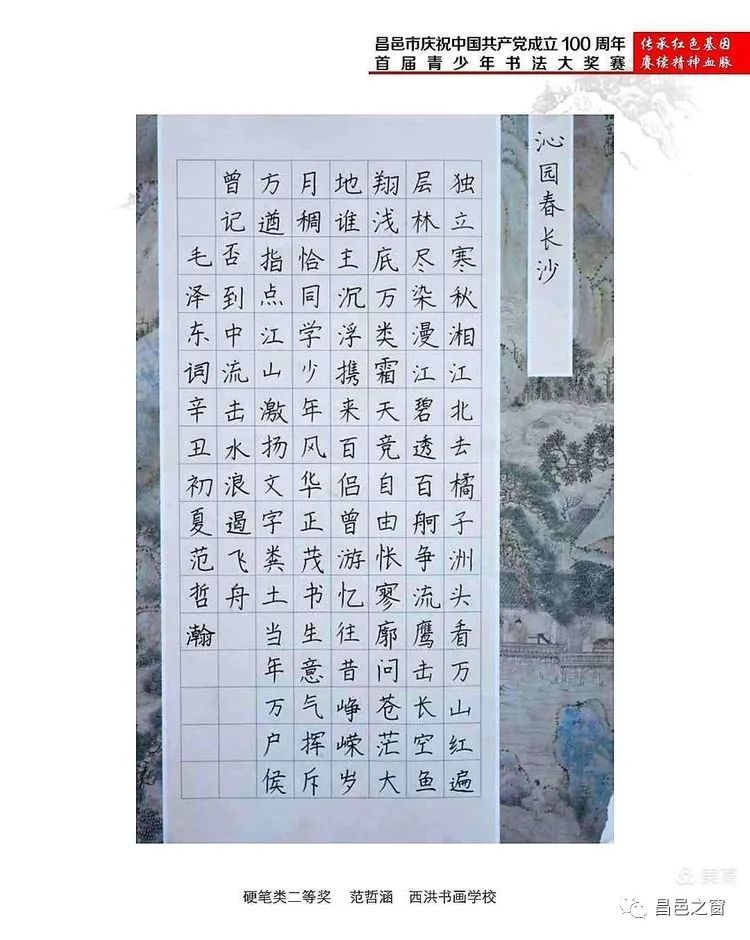 昌邑市庆祝中国共产党成立100周年
首届青少年书法大奖赛
传承红色基因
赓续精神血脉
沁园春长沙
独立寒秋湘江北去橘子洲头看万山红遍
层林尽染漫江碧透百舸争流鹰击长空鱼
翔浅底万类霜天竞自由怅寥廓问苍茫大
地谁主沉浮携来百侣曾游忆往昔峥嵘岁
月稠恰同学少年风华正茂书生意气挥斥
方遒指点江山激扬文字粪土当年万户侯
曾记否到中流击水浪遏飞舟
毛泽东词辛丑初夏范哲瀚
硬笔类二等奖 范哲涵 西洪书画学校
美篇
昌邑之窗